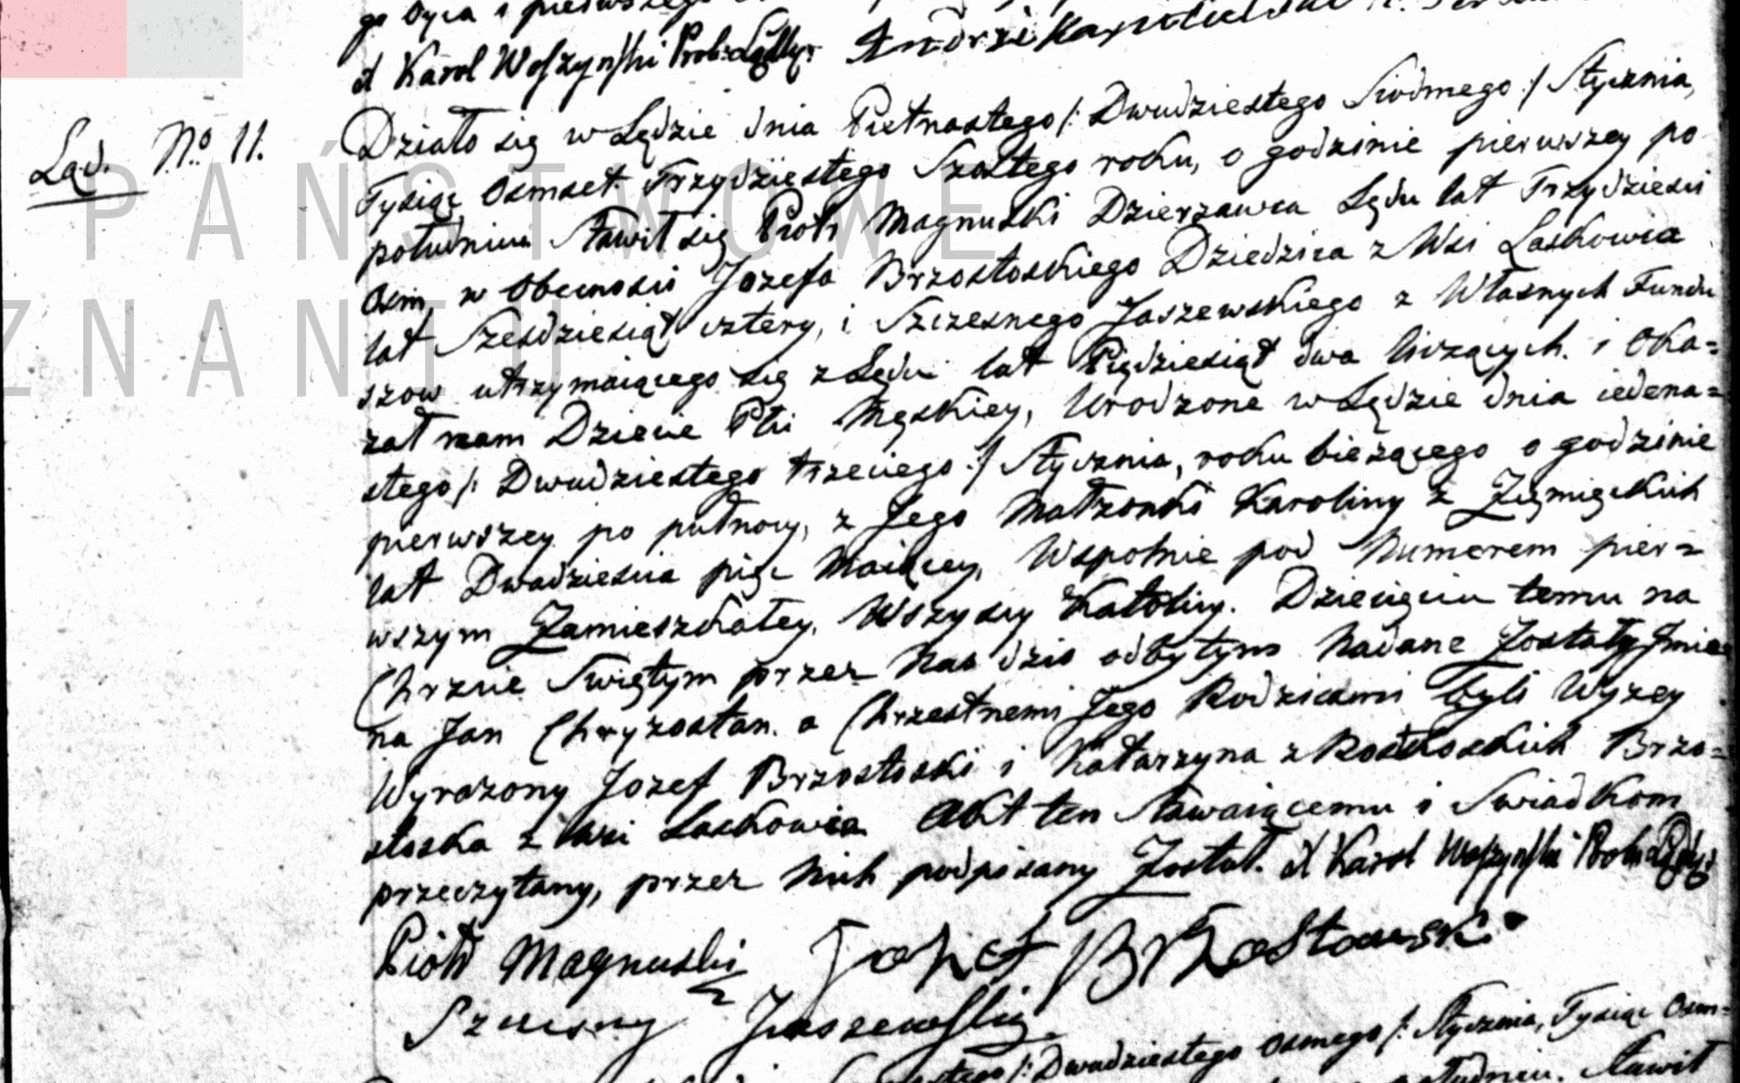 go Oyca i pierwszego
X Karol Woszyński Prob: Lądzki Andrzei
Ląd. No. 11.
PAŃSTWOWE
ZNANIU
Działo się w Lędzie dnia Pietnastego /: Dwudziestego Siodmego :/ Stycznia,
Tysiąc Osmset Trzydziestego Szostego roku, o godzinie pierwszey po
południu Stawił się Piotr Magnuski Dzierzawca Lędu lat Trzydziesci
Osm, w Obecnosci Jozefa Brzostoskiego Dziedzica z Wsi Laskowca
lat Szescdziesiąt cztery, i Szczesnego Jaszewskiego z Własnych Fundu
szow utrzymaiącego się z Lędu lat Pięcdziesiąt dwa liczących. i Oka=
zał nam Dziecie Płci Męskiey, Urodzone w Lędzie dnia iedena=
stego /: Dwudziestego trzeciego :/ Stycznia, roku bieżącego o godzinie
pierwszey po pułnocy, z Jego Małzonki Karoliny z Zięmięckich
lat Dwadziescia pięc Maiącey, Wspolnie pod Numerem pier=
wszym Zamieszkałey, Wszyscy Katolicy. Dziecięciu temu na
Chrzcie Swiętym przez Nas dzis odbytym Nadane Zostały Jmio
na Jan Chryzostan. a Chrzestnemi Jego Rodzicami byli Wyzey
Wyrazony Jozef Brzostoski i Katarzyna z Brzo=
stoska z Wsi Laskowca Akt ten Stawaiącemu i Swiadkom
przeczytany, przez Nich podpisany Został. X Karol Woszyński Prob: Lądzki
Piotr Magnuski Jozef Brzostowski
Szczesny Jaszewski
/: Dwudziestego Osmego :/ Stycznia, Tysiąc Osm=
południu. Stawił